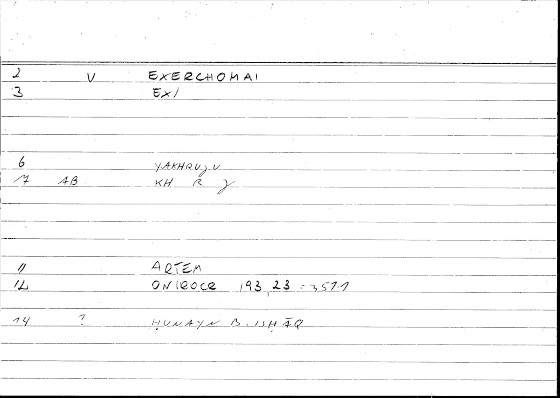 2 V EXERCHOMAI
3 EXI
6 YAKHRUJU
17 AB KH R J
11 ARTEM
12 ONIROCR 193,23 = 351.1
14 ? ḤUNAYN B. ISḤĀQ